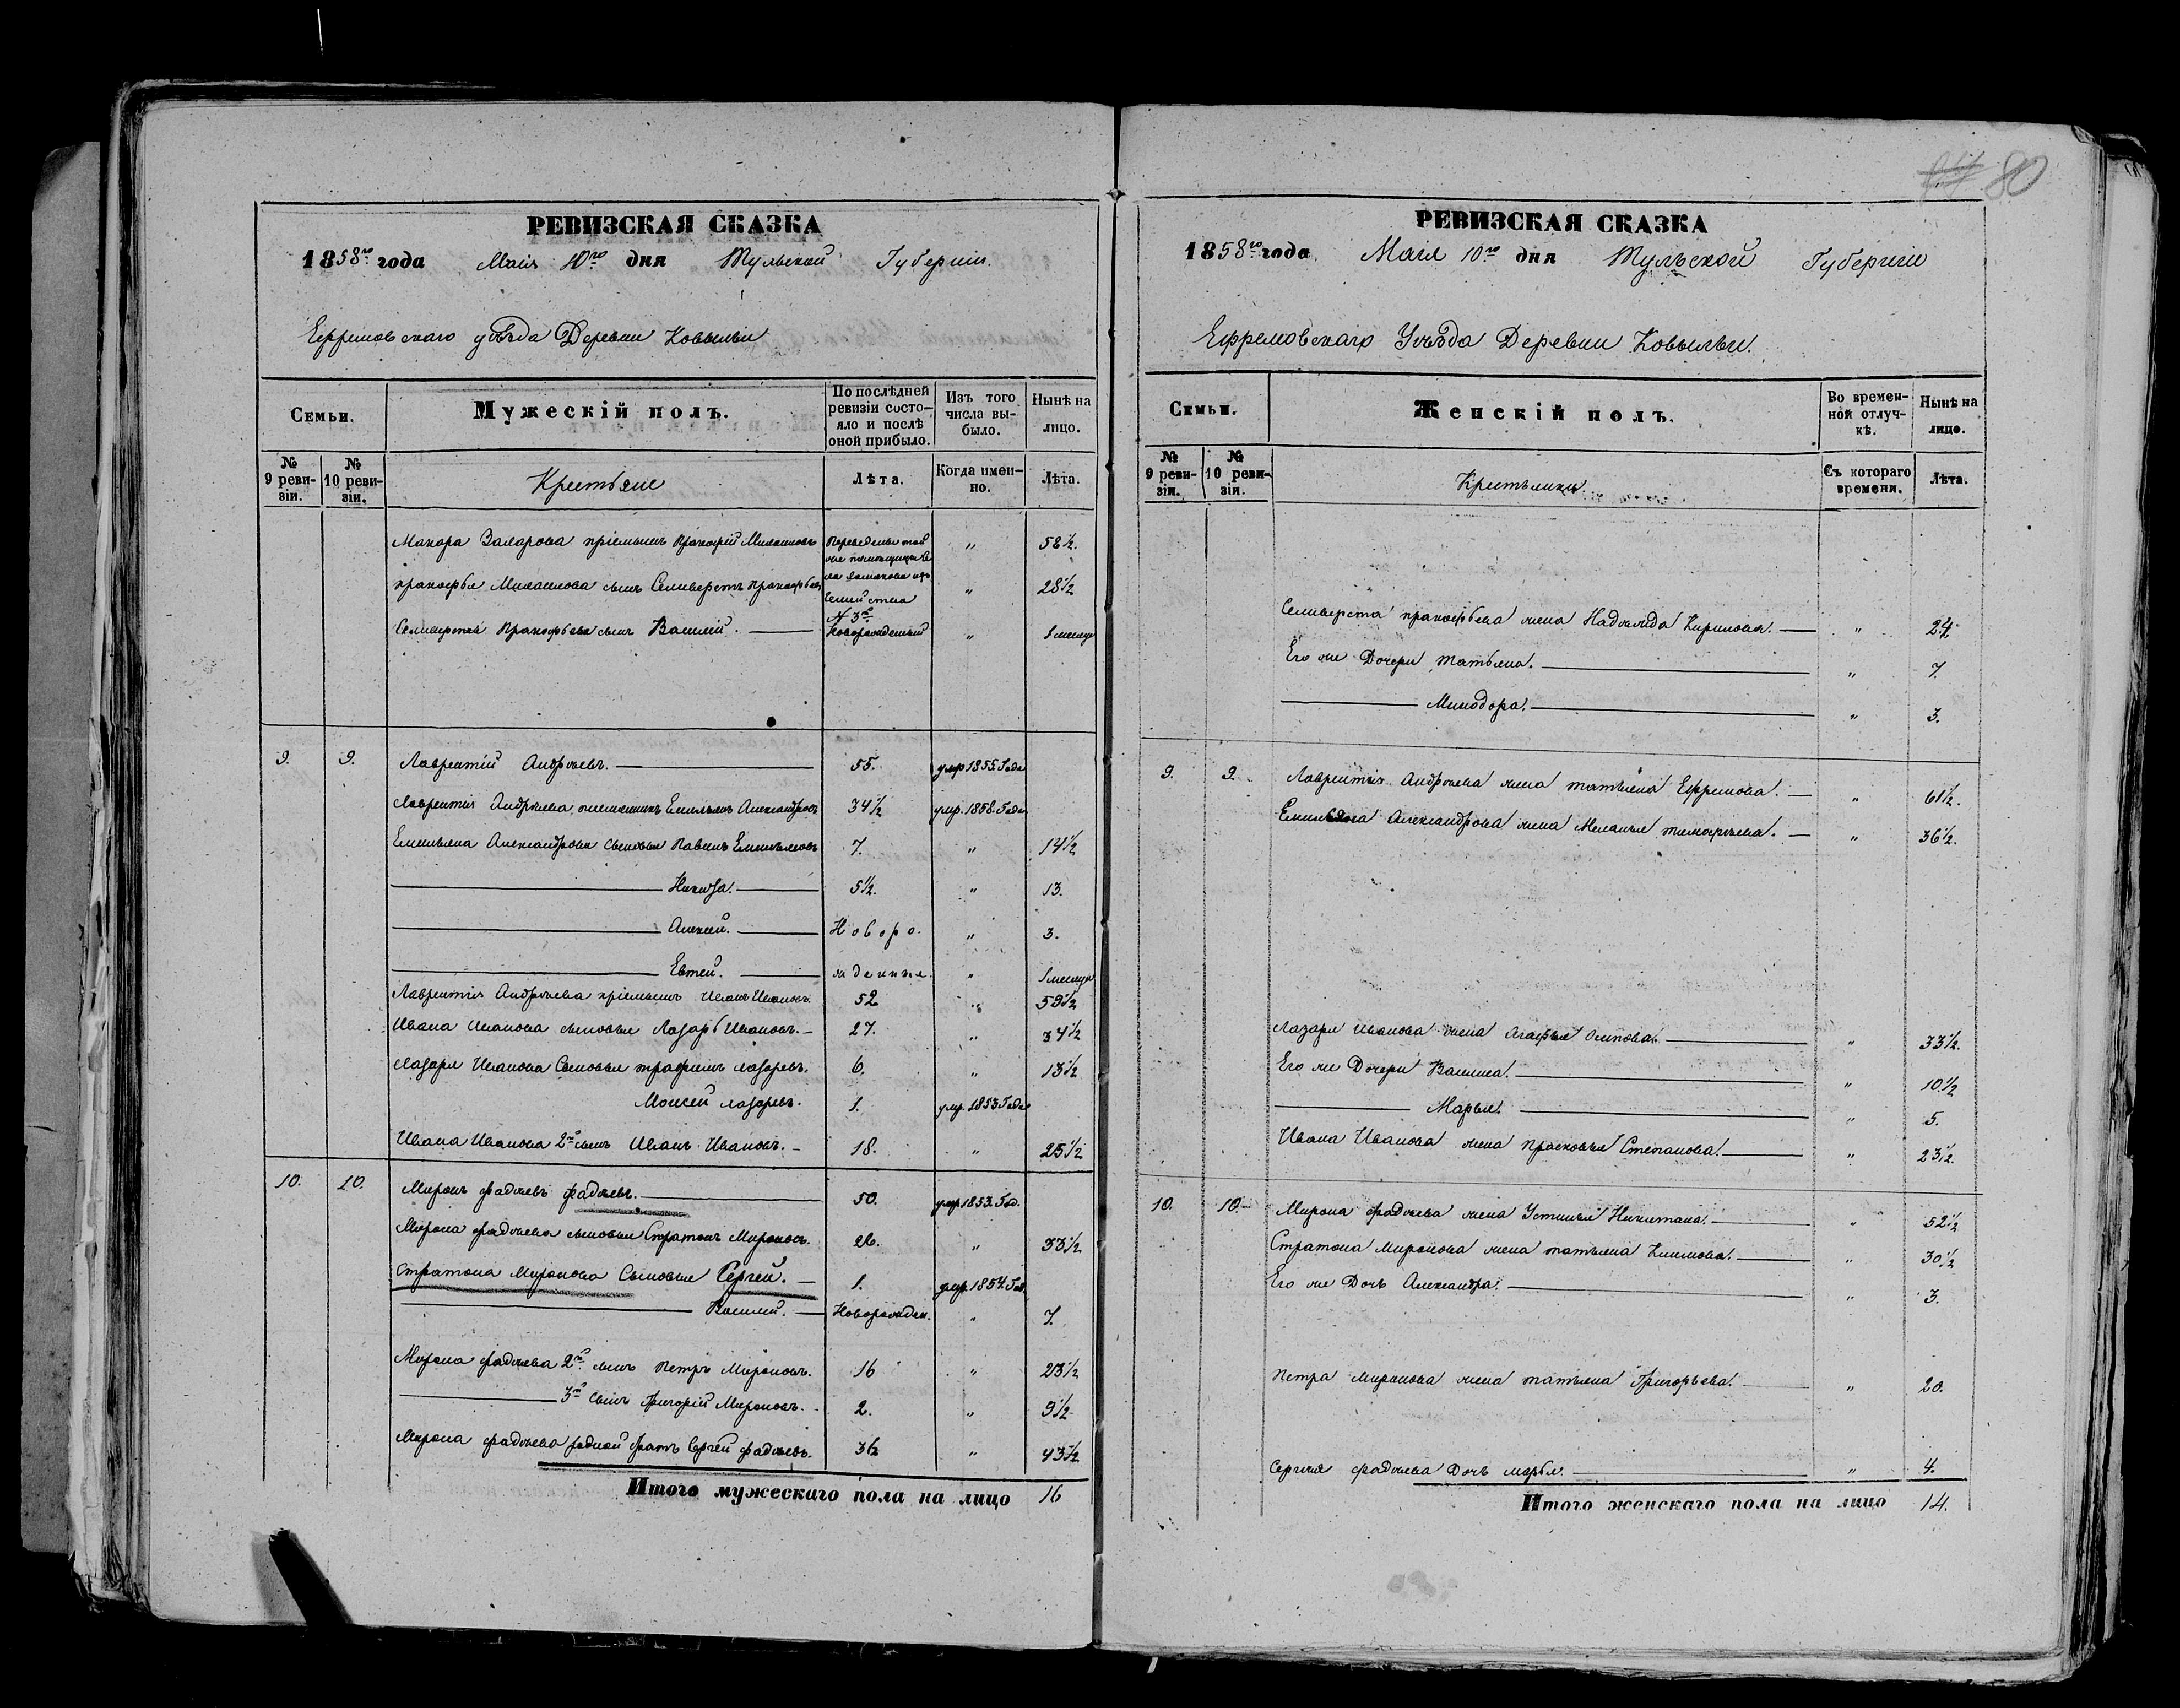 80
РЕВИЗСКАЯ СКАЗКА
1858го года Маія 10го дня Тульской Губерніи.
Ефремовскаго уѣзда Деревни Ковыльи
Семьи.
Мужескій полъ.
По послѣдней ревизіи состо-
яло и послѣ оной прибыло.
Изъ того числа вы-
было.
Нынѣ на лицо.
№ 9 реви-
зіи.
№ 10 реви-
зіи.
Крестьяне
Лѣта.
Когда имен-
но.
Лѣта.
Макара Захарова пріемышъ Прокофій Милаиновъ Переведены той " 58½.
же помещицы
Прокофья Милаинова сынъ Селиверстъ Прокофьевъ " 28½
семейства
№ 3го
Селиверста Прокофьева сынъ Василій. Новорожденный " 1 месяцъ
9. 9. Лаврентій Андреевъ. 55. умр. 1855. Года
Лаврентія Андреева племянникъ Емельянъ Александровъ 34½ умр. 1858. Года
Емельяна Александрова сыновья Павелъ Емельяновъ 7. " 14½
Никита. 5½. " 13.
Алексей. Новоро- " 3.
Евтей. жденные. " 1 месяцъ
Лаврентія Андреева пріемышъ Иванъ Ивановъ. 52 " 59½
Ивана Иванова сыновья Лазарь Ивановъ. 27. " 34½
Лазаря Иванова Сыновья трофимъ лазоревъ. 6. " 13½
Моисей лазоревъ. 1. умр. 1853 Года
Ивана Иванова 2й сынъ Иванъ Ивановъ. 18. " 25½
10. 10. Миронъ фадеевъ фадеевъ. 50. умр. 1853. Год.
Мирона фадеева сыновья Стратонъ Мироновъ. 26. " 33½
Стратона Миронова Сыновья Сергей. 1. умр. 1854. Год.
Василій. Новорожден. " 7.
Мирона фадеева 2й сынъ Петръ Мироновъ. 16 " 23½
3й Сынъ Григорій Мироновъ. 2. " 9½
Мирона фадеева родной братъ Сергей фадеевъ. 36 " 43½
Итого мужескаго пола на лицо 16
РЕВИЗСКАЯ СКАЗКА
1858го года Маія 10го дня Тульской Губерніи
Ефремовскаго Уѣзда Деревни Ковыльи.
Семьи.
Женскій полъ.
Во времен-
ной отлуч-
кѣ.
Нынѣ на лицо.
№ 9 реви-
зіи.
№ 10 реви-
зіи.
Крестьянки
Съ котораго времени.
Лѣта.
Селиверста прокофьева жена Надежда Кирилова. " 24.
Его же Дочери Татьяна. " 7.
Минодора. " 3.
9. 9. Лаврентія Андреева жена татьяна Ефремова. " 61½.
Емельяна Александрова жена Меланья тимофеева. " 36½.
Лазаря Иванова жена Агафья Осипова. " 33½.
Его же Дочери Василиса. " 10½
Марья. " 5.
Ивана Иванова жена Прасковья Степанова. " 23½.
10. 10. Мирона фадеева жена Устинья Никитина. " 52½
Стратона Миронова жена татьяна Климова. " 30½
Его же Дочь Александра. " 3.
Петра миронова жена татьяна Григорьева. " 20.
Сергея фадеева Дочь марья. " 4.
Итого женскаго пола на лицо 14.